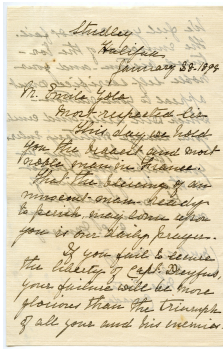 Studley
Halifax
January 28. 1898
M. Emile Zola
Most respected Sir
This day we hold
you the bravest and most
noble man in France.
That the blessing of an
innocent man ready
to perish may come upon
you is our daily prayer.
If you fail to secure
the liberty of Capt. Dreyfus,
your failure will be more
glorious than the triumph
of all your and his enemies